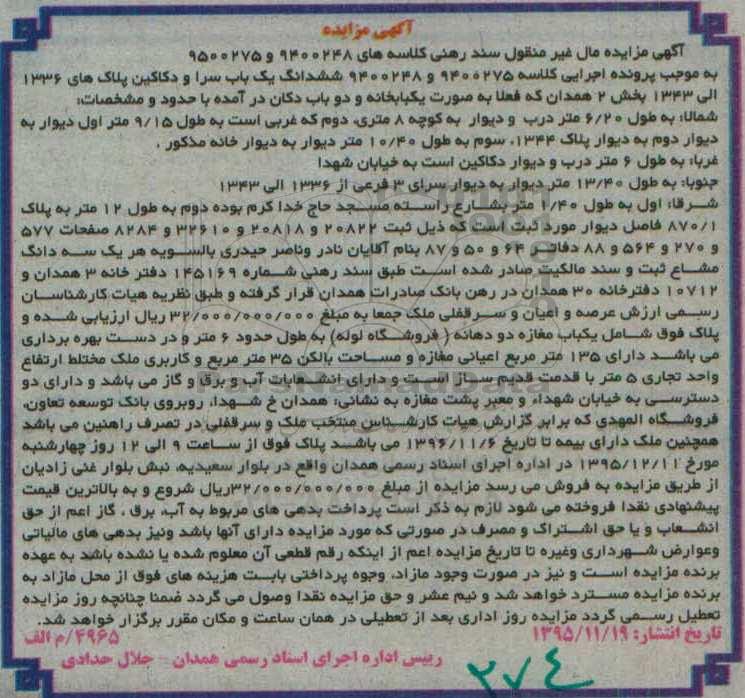 آگهی مزایده
آگهی مزایده مال غیر منقول سند رهنی کلاسه های ۹۴۰۰۲۴۸ و ۹۵۰۰۲۷۵
به موجب پرونده اجرایی کلاسه ۹۴۰۰۲۷۵ و ۹۴۰۰۲۴۸ ششدانگ یک باب سرا و دکاکین پلاک های ۱۳۳۶
الی ۱۳۴۳ بخش ۲ همدان که فعلا به صورت یکبابخانه و دو باب دکان در آمده با حدود و مشخصات:
شمالا: به طول ۶/۲۰ متر درب و دیوار به کوچه ۸ متری، دوم که غربی است به طول ۹/۱۵ متر اول دیوار به
دیوار دوم به دیوار پلاک ۱۳۴۴، سوم به طول ۱۰/۴۰ متر دیوار به دیوار خانه مذکور.
غربا: به طول ۶ متر درب و دیوار دکاکین است به خیابان شهدا
جنوبا: به طول ۱۳/۴۰ متر دیوار به دیوار سرای ۳ فرعی از ۱۳۳۶ الی ۱۳۴۳
شرقا: اول به طول ۱/۴۰ متر بشارع راسته مسجد حاج خدا کرم بوده دوم به طول ۱۲ متر به پلاک
۸۷۰/۱ فاصل دیوار مورد ثبت است که ذیل ثبت ۲۰۸۲۲ و ۲۰۸۱۸ و ۳۲۶۱۰ و ۸۲۸۴ صفحات ۵۷۷
و ۲۷۰ و ۵۶۴ و ۸۸ دفاتر ۶۴ و ۵۰ و ۸۷ بنام آقایان نادر وناصر حیدری بالسویه هر یک سه دانگ
مشاع ثبت و سند مالکیت صادر شده است طبق سند رهنی شماره ۱۴۵۱۶۹ دفتر خانه ۳ همدان و
۱۰۷۱۲ دفترخانه ۳۰ همدان در رهن بانک صادرات همدان قرار گرفته و طبق نظریه هیات کارشناسان
رسمی ارزش عرصه و اعیان و سرقفلی ملک جمعا به مبلغ ۳۲/۰۰۰/۰۰۰/۰۰۰ ریال ارزیابی شده و
پلاک فوق شامل یکباب مغازه دو دهانه ( فروشگاه لوله) به طول حدود ۶ متر و در دست بهره برداری
می باشد دارای ۱۳۵ متر مربع اعیانی مغازه و مساحت بالکن ۳۵ متر مربع و کاربری ملک مختلط ارتفاع
واحد تجاری ۵ متر با قدمت قدیم ساز است و دارای انشعابات آب و برق و گاز می باشد و دارای دو
دسترسی به خیابان شهداء و معبر پشت مغازه به نشانی: همدان خ شهدا، روبروی بانک توسعه تعاون،
فروشگاه المهدی که برابر گزارش هیات کارشناس منتخب ملک و سرقفلی در تصرف راهنین می باشد
همچنین ملک دارای بیمه تا تاریخ ۱۳۹۶/۱۱/۶ می باشد پلاک فوق از ساعت ۹ الی ۱۲ روز چهارشنبه
مورخ ۱۳۹۵/۱۲/۱۱ در اداره اجرای اسناد رسمی همدان واقع در بلوار سعیدیه، نبش بلوار غنی زادیان
از طریق مزایده به فروش می رسد مزایده از مبلغ ۳۲/۰۰۰/۰۰۰/۰۰۰ریال شروع و به بالاترین قیمت
پیشنهادی نقدا فروخته می شود لازم به ذکر است پرداخت بدهی های مربوط به آب، برق ، گاز اعم از حق
انشعاب و یا حق اشتراک و مصرف در صورتی که مورد مزایده دارای آنها باشد ونیز بدهی های مالیاتی
وعوارض شهرداری وغیره تا تاریخ مزایده اعم از اینکه رقم قطعی آن معلوم شده یا نشده باشد به عهده
برنده مزایده است و نیز در صورت وجود مازاد، وجوه پرداختی بابت هزینه های فوق از محل مازاد به
برنده مزایده مسترد خواهد شد و نیم عشر و حق مزایده نقدا وصول می گردد ضمنا چنانچه روز مزایده
تعطیل رسمی گردد مزایده روز اداری بعد از تعطیلی در همان ساعت و مکان مقرر برگزار خواهد شد.
تاریخ انتشار: ۱۳۹۵/۱۱/۱۹ ۴۹۶۵/م الف
رییس اداره اجرای اسناد رسمی همدان - جلال حدادی
۲۷۴